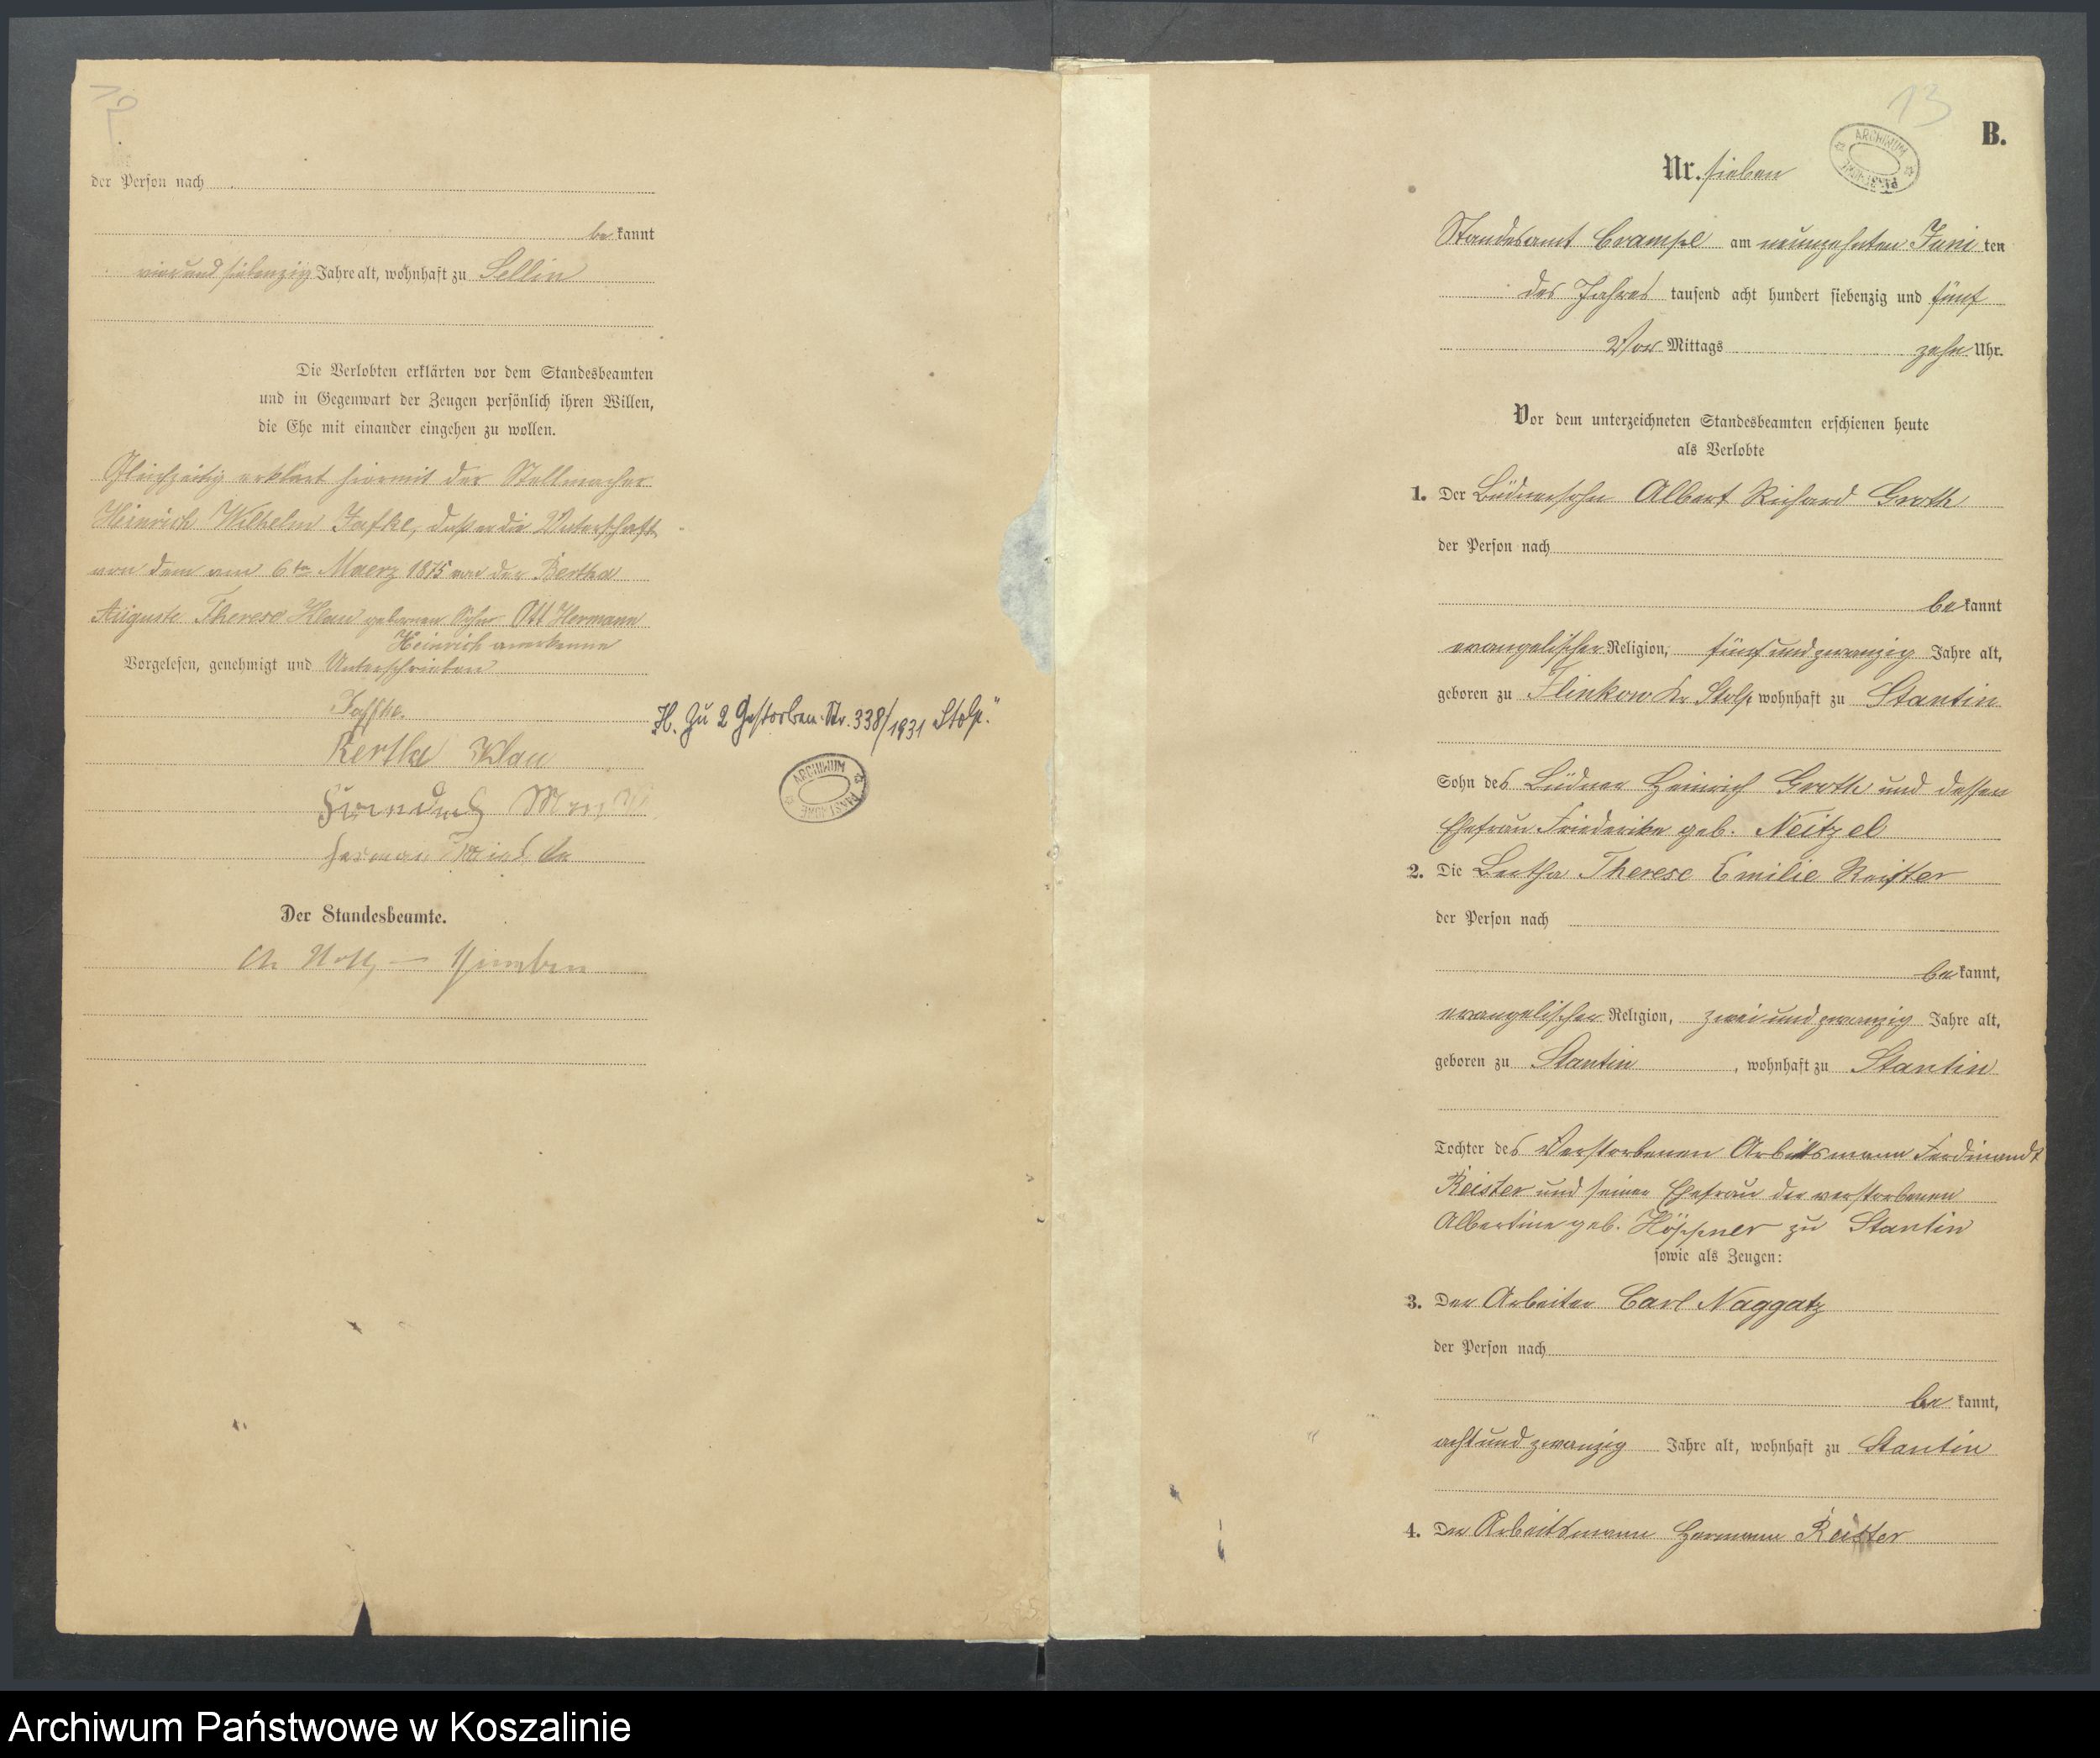 der Person nach
be kannt
vier und siebenzig Jahre alt, wohnhaft zu Sellin
Die Verlobten erklärten vor dem Standesbeamten
und in Gegenwart der Zeugen persönlich ihren Willen,
die Ehe mit einander eingehen zu wollen.
Gleichzeitig erklärt hiermit der Stellmacher
Heinrich Wilhelm Jaffke, daß er die Vaterschaft
von dem am 6ten Maerz 1875 von der Bertha
Auguste Therese Klau geborenen Sohn Ott Hermann
Heinrich anerkenne
Vorgelesen, genehmigt und Unterschrieben
Jaffke
Bertha Klau
Der Standesbeamte.
H. Zu 2 Gestorben. Nr. 338/1931 Stolp."
ARCHIWUM
PAŃSTWOWE
13
B.
ARCHIWUM
PAŃSTWOWE
Nr. sieben
Standesamt Crampe am neunzehnten Juni ten
des Jahres tausend acht hundert siebenzig und fünf
Vor Mittags zehn Uhr.
Vor dem unterzeichneten Standesbeamten erschienen heute
als Verlobte
1. Der Büdnersohn Albert Richard Groth
der Person nach
be kannt
evangelischer Religion, fünf und zwanzig Jahre alt,
geboren zu Flinkow Kr Stolp wohnhaft zu Stantin
Sohn des Büdner Heinrich Groth und dessen
Ehefrau Friederike geb. Neitzel
2. Die Bertha Therese Emilie Reister
der Person nach
be kannt,
evangelischer Religion, zwei und zwanzig Jahre alt,
geboren zu Stantin, wohnhaft zu Stantin
Tochter des Verstorbenen Arbeitsmann Ferdinandt
Reister und seiner Ehefrau der verstorbenen
Albertine geb. Höppner zu Stantin
sowie als Zeugen:
3. Der Arbeiter Carl Naggatz
der Person nach
be kannt,
acht und zwanzig Jahre alt, wohnhaft zu Stantin
4. Der Arbeitsmann Hermann Reister
Archiwum Państwowe w Koszalinie